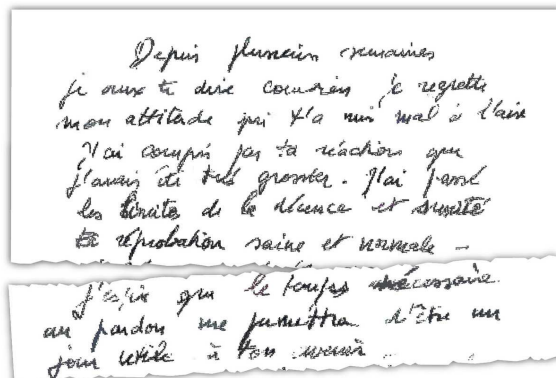 Depuis plusieurs semaines
je veux te dire combien je regrette
mon attitude qui t'a mis mal à l'aise
J'ai compris par ta réaction que
j'avais été très grossier. J'ai passé
les limites de la décence et suscité
ta réprobation saine et normale -
J'espère que le temps nécessaire
au pardon me permettra d'être un
jour utile à ton avenir